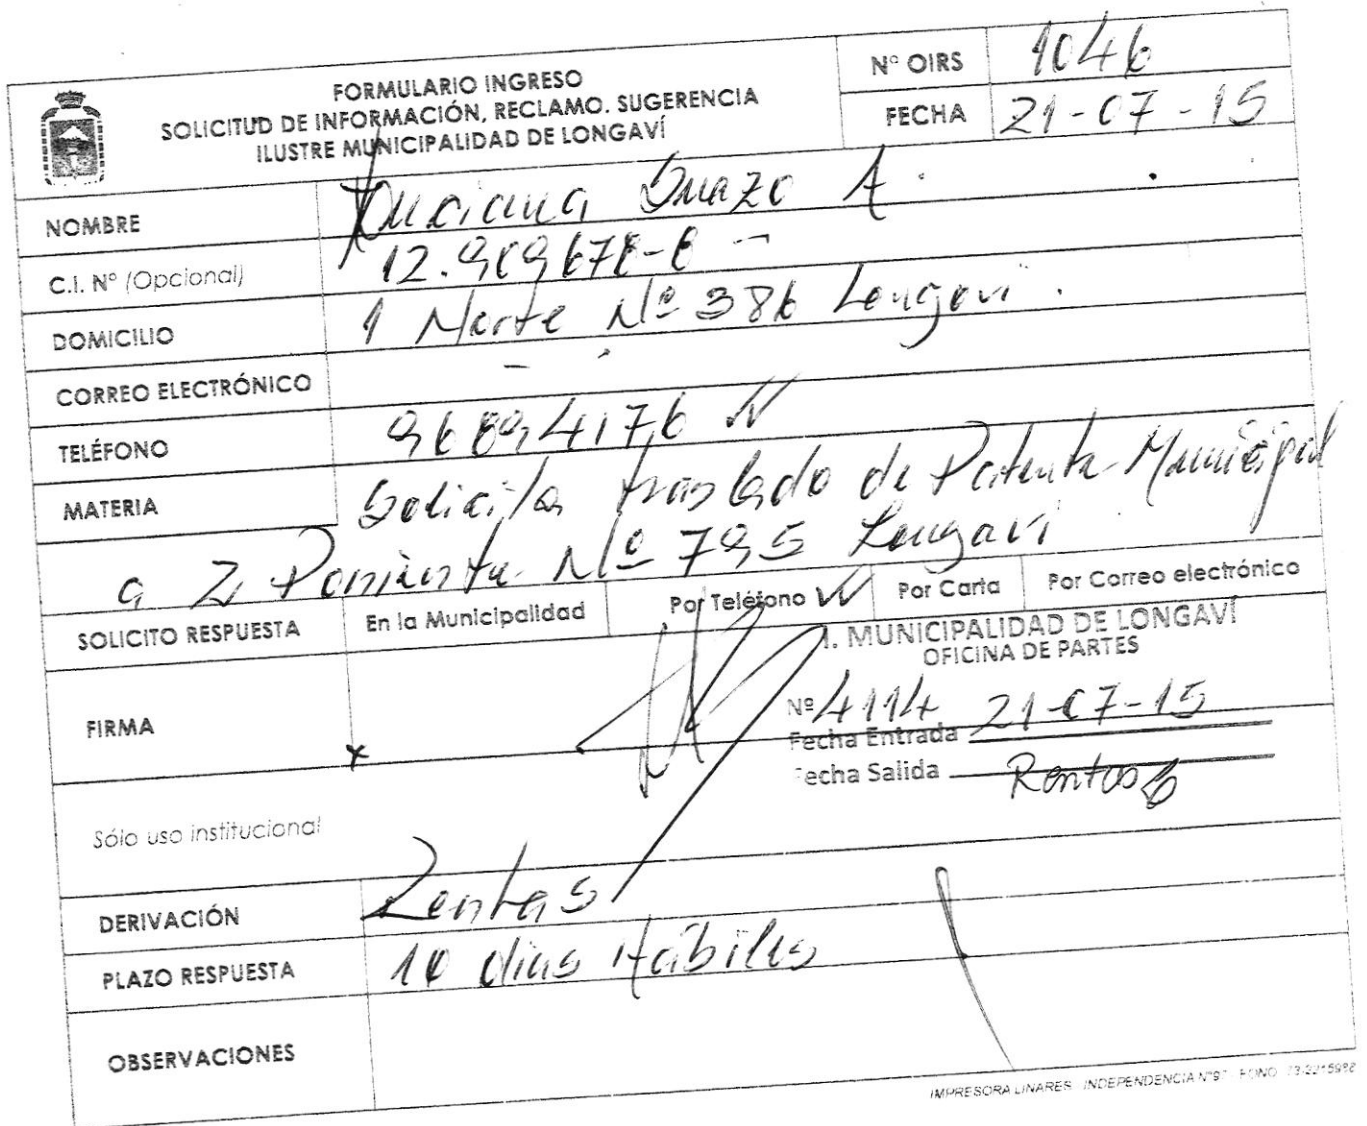 FORMULARIO INGRESO
SOLICITUD DE INFORMACIÓN, RECLAMO. SUGERENCIA
ILUSTRE MUNICIPALIDAD DE LONGAVÍ
N° OIRS 1046
FECHA 21-07-15
NOMBRE Luciana Suazo A.
C.I. N° (Opcional) 12.909678-8
DOMICILIO 1 Norte Nº 386 Longaví.
CORREO ELECTRÓNICO -
TELÉFONO 96894176
MATERIA Solicita traslado de Patente Municipal
a 2 Poniente Nº 795 Longaví
SOLICITO RESPUESTA En la Municipalidad Por Teléfono Por Carta Por Correo electrónico
I. MUNICIPALIDAD DE LONGAVÍ
OFICINA DE PARTES
FIRMA x
Nº 4114 21-07-15
Fecha Entrada
Fecha Salida Rentas
Sólo uso institucional
DERIVACIÓN Rentas
PLAZO RESPUESTA 10 dias Hábiles
OBSERVACIONES
IMPRESORA LINARES INDEPENDENCIA